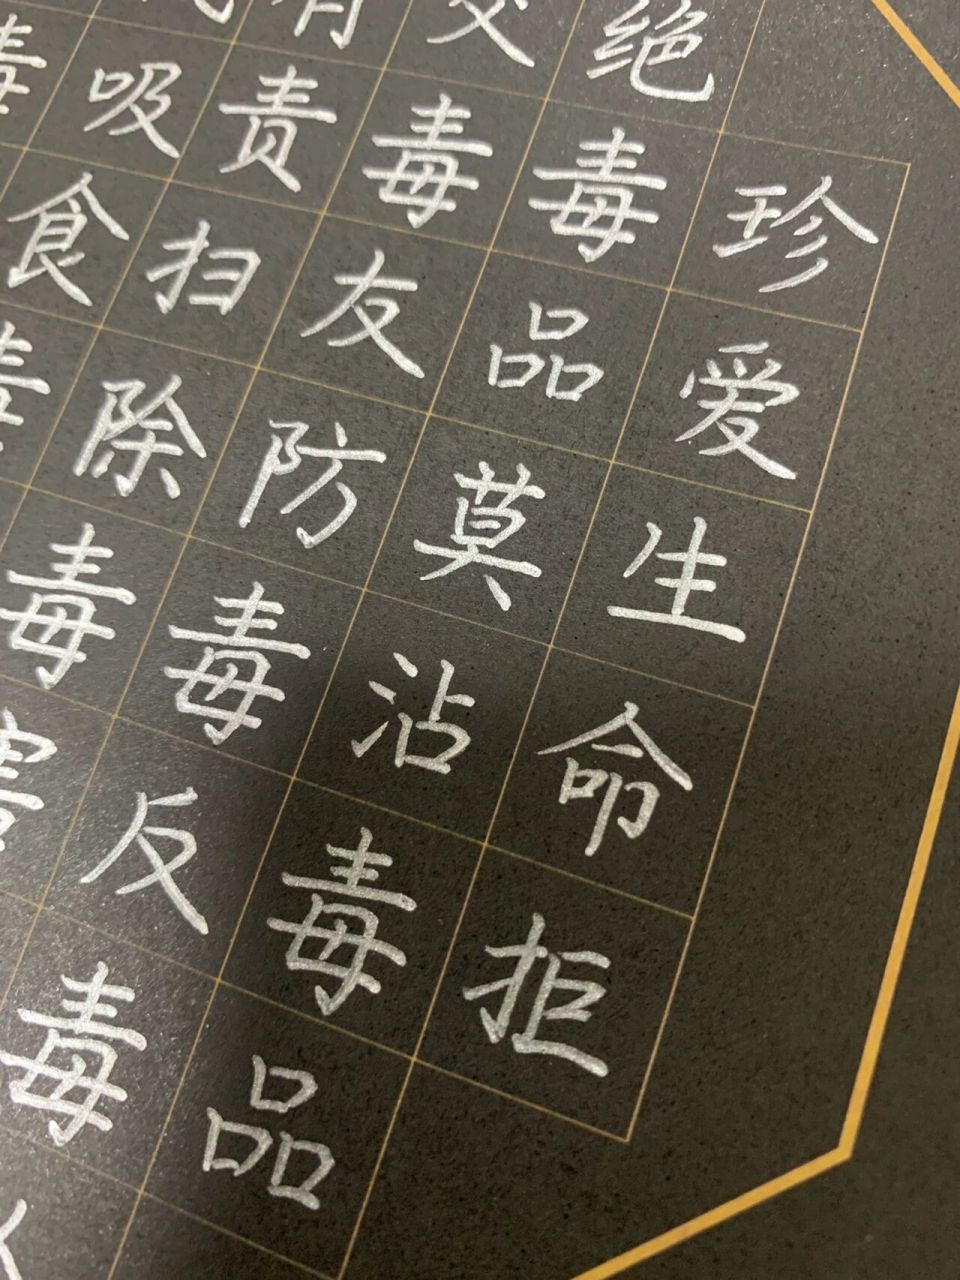 珍爱生命拒
绝毒品莫沾毒品
交毒友防毒反毒人
有责扫除毒害
吸食毒
毒